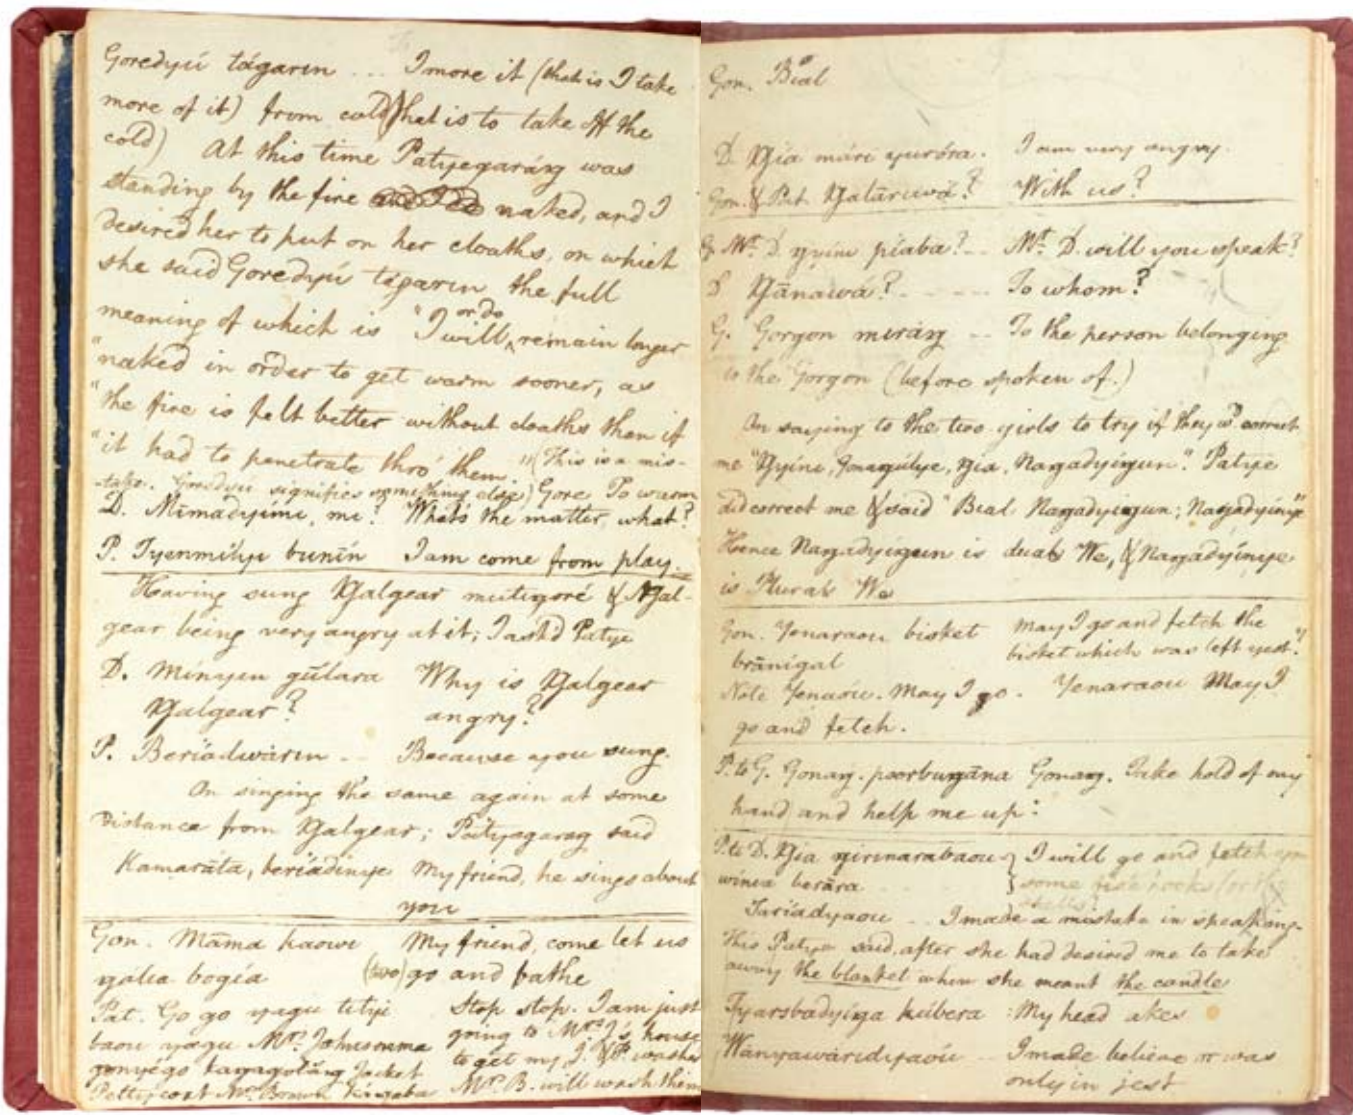 Goredyú tágarin ... I more it (that is I take
more of it) from cold (that is to take off the
cold) At this time Patyegaráng was
standing by the fire naked, and I
desired her to put on her cloaths, on which
she said Goredyú tágarin the full
meaning of which is "I will or do remain longer
"naked in order to get warm sooner, as
"the fire is felt better without cloaths than if
"it had to penetrate thro' them." (This is a mis-
take. Goredyú signifies something else) Gore To warm
D. Mīmadyími, mi? What's the matter, what?
P. Tyenmíly̆i bunín I am come from play.
Having sung Ŋalgear mutiŋoré & Ŋal-
gear being very angry at it; I ask'd Patye
D. Minyin gūlara Why is Ŋalgear
Ŋalgear? angry?
P. Beríadwárin -- Because you sung.
On singing the same again at some
distance from Ŋalgear; Patyegarang said
Kamaráta, beríadinye My friend, he sings about
you
Gon. Māma kaowi My friend, come let us
ŋalia bogía (two) go and bathe
Pat. Go go yagu titji Stop stop. I am just
baou yagu Mrs. Johnsonma going to Mrs. J's house
gonyégo kayagotāng Jacket to get my J. & P. washed
Pettycoat Mrs. Brown Mrs. B. will wash them
Gon. Bial
D. Ŋia mári yuróra. I am very angry.
Gon. & Pat. Ŋalāriwā? With us?
G. Mr. D. ŋyíni píaba? -- Mr. D. will you speak?
D Ŋānawá? ---- To whom?
G. Gorgon miráŋ -- To the person belonging
to the Gorgon (before spoken of.)
On saying to the two girls to try if they wd. correct
me "Ŋyíni, Gonagúlye, ŋia, Naŋadyíŋun." Patye
did correct me & said "Bial Naŋadyíŋun; Naŋadyínye"
Hence Naŋadyíŋun is dual We, & Naŋadyínye
is Plural We
Gon. Yenaraou bisket May I go and fetch the
brānígal bisket which was left yest.?
Note Yenaóu. May I go. Yenaraou May I
go and fetch.
P. to G. Gonaŋ. poorbuŋāna Gonaŋ. Take hold of my
hand and help me up:
P. to D. Ŋia ŋirinarabaou } I will go and fetch you
winia berāra } some fish hooks
Taríadyaou -- I made a mistake in speaking.
This Patye said, after she had desired me to take
away the blanket when she meant the candle
Tyarsbadyíŋa kúbera :My head akes
Wanyawáridyaóu -- I made believe or was
only in jest